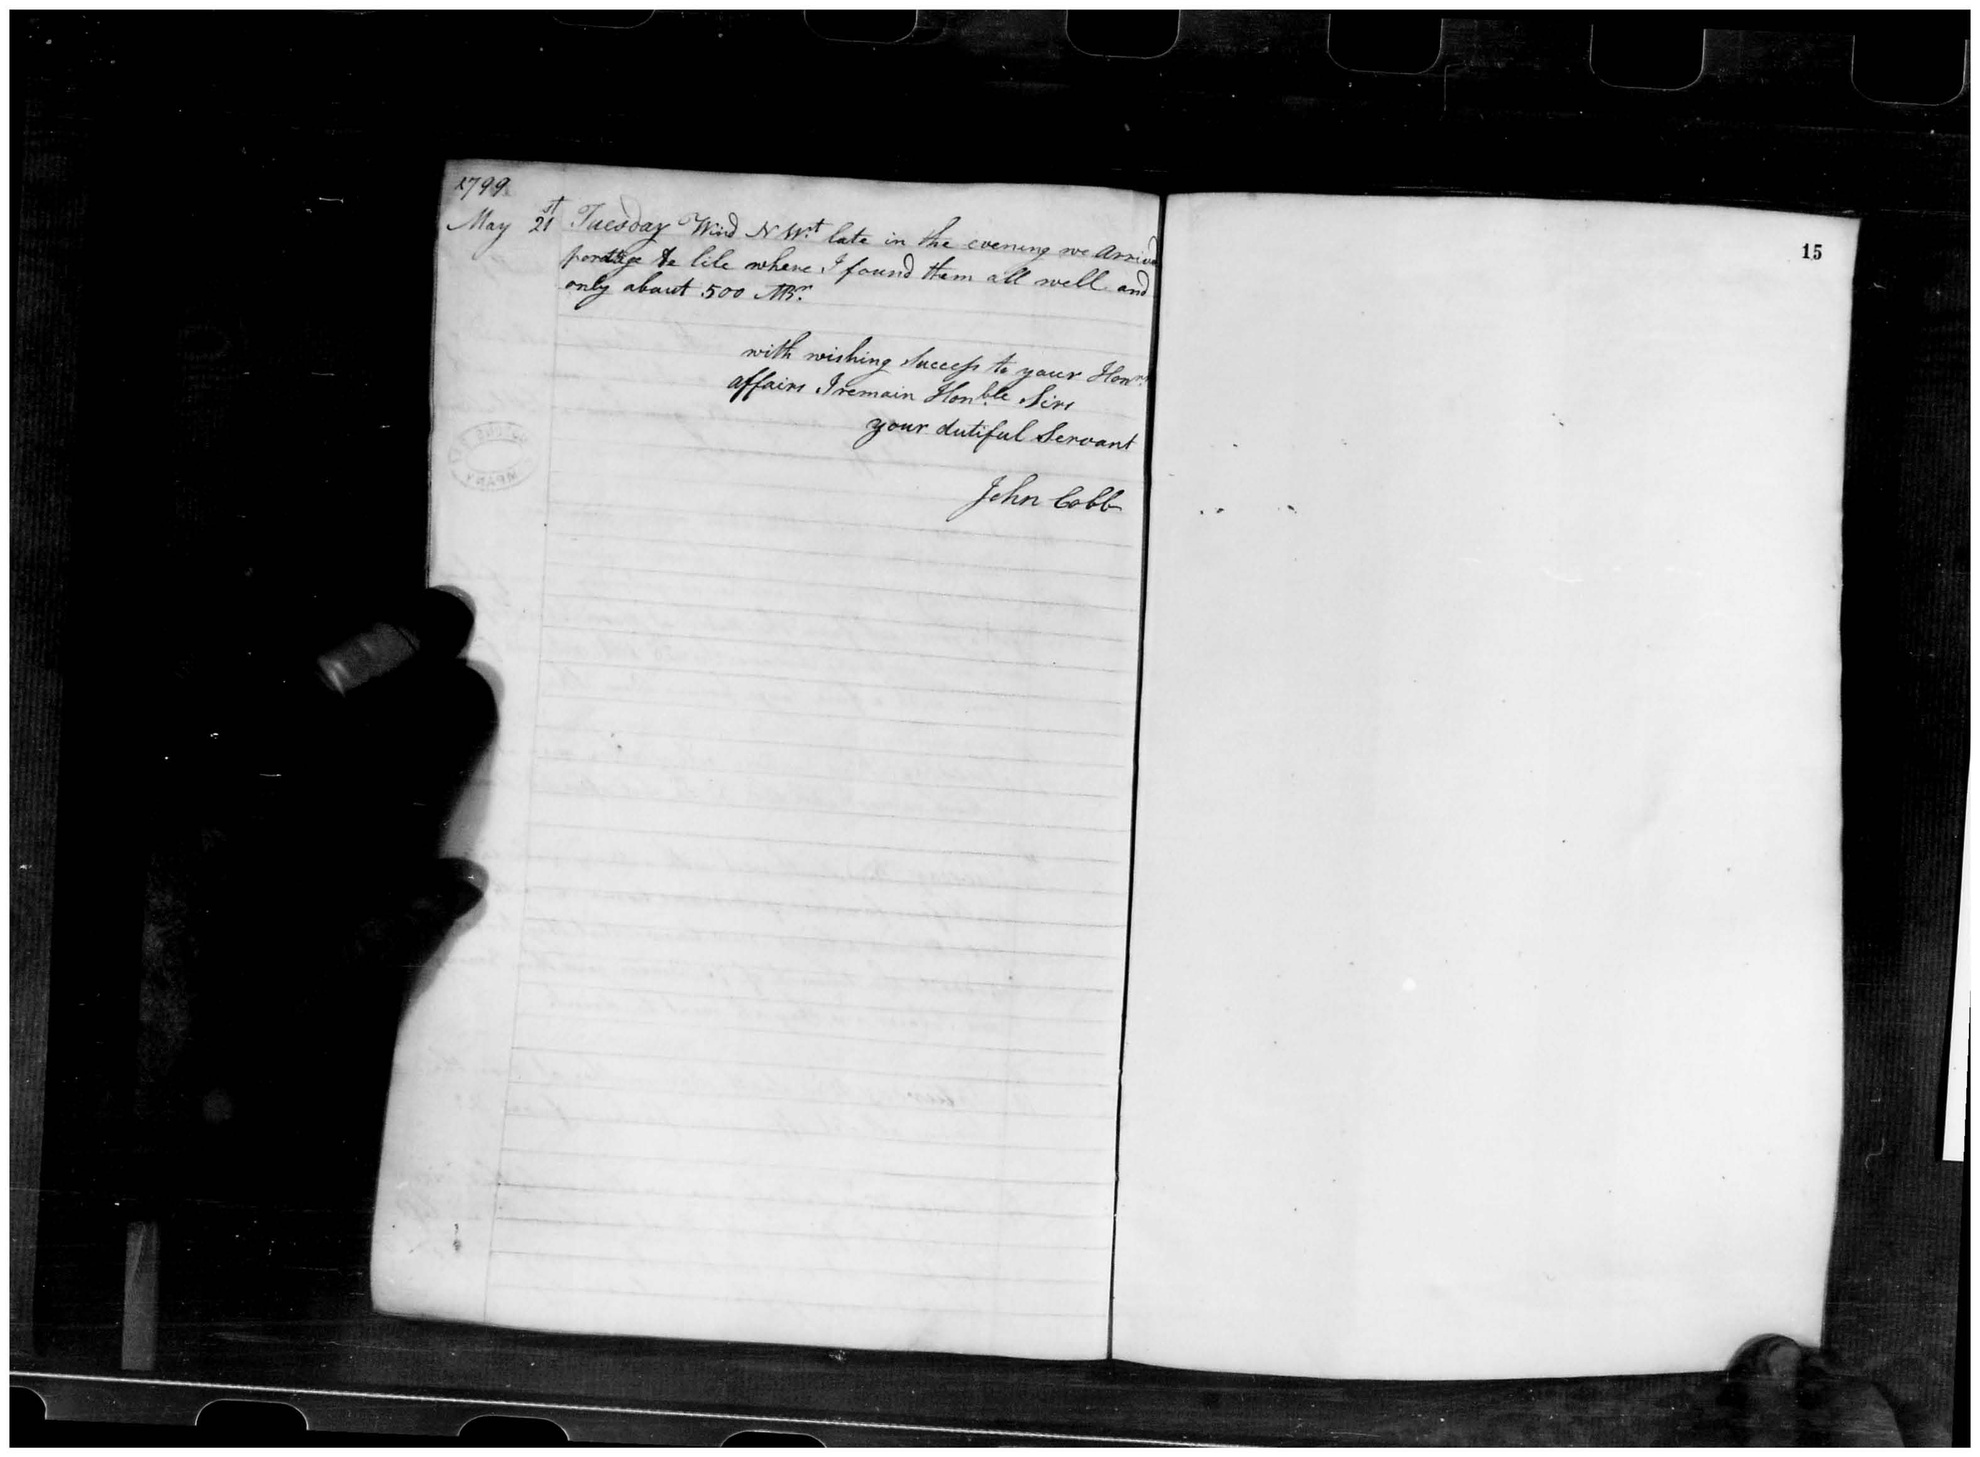 1799
May 21st Tuesday Wind N Wt late in the evening we Arrived
portage de lile where I found them all well and
only about 500 MBr.
with wishing success to your Honrs
affairs I remain Honble Sirs
your dutiful Servant
John Cobb
15